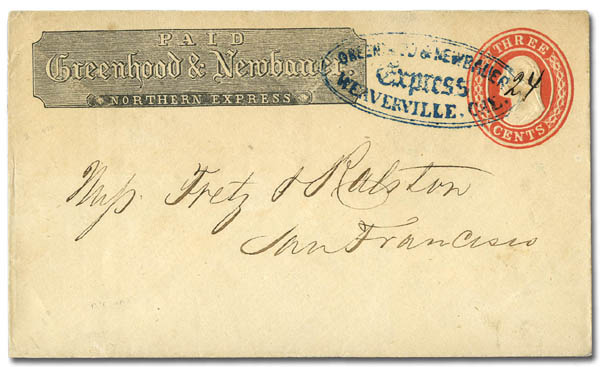 PAID
Greenhood & Newbaue
NORTHERN EXPRESS
GREENHOOD & NEWBAUER
Express
WEAVERVILLE, CAL.
THREE
CENTS
24
Messʳˢ Fretz & Ralston
San Francisco